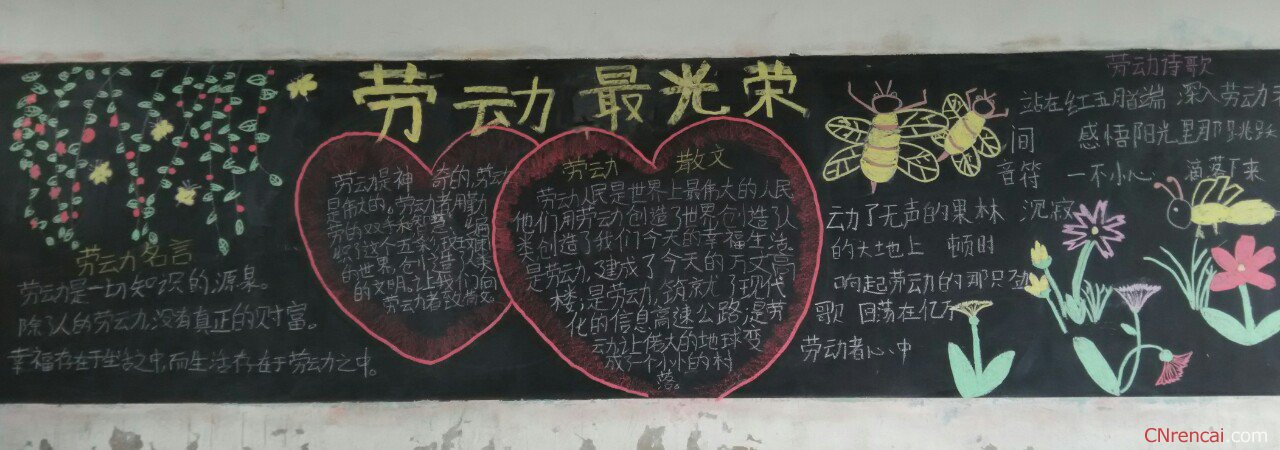 劳动最光荣
劳动名言
劳动是一切知识的源泉。
除了人的劳动,没有真正的财富。
幸福存在于生活之中,而生活存在于劳动之中。
劳动是神奇的,劳动
是伟大的。劳动者用勤
劳的双手和智慧,编
织了这个五彩斑斓
的世界,创造了人类
的文明。让我们向
劳动者致敬
劳动 散文
劳动人民是世界上最伟大的人民,
他们用劳动创造了世界,创造了人
类,创造了我们今天的幸福生活。
是劳动,建成了今天的万丈高
楼;是劳动,筑就了现代
化的信息高速公路;是劳
动让伟大的地球变
成一个小小的村
落。
劳动诗歌
站在红五月首端 深入劳动之
间 感悟阳光里那跳跃
音符 一不小心 滴落下来
动了无声的果林 沉寂
的大地上 顿时
响起劳动的那只
歌 回荡在亿万
劳动者心中
CNrencai.com